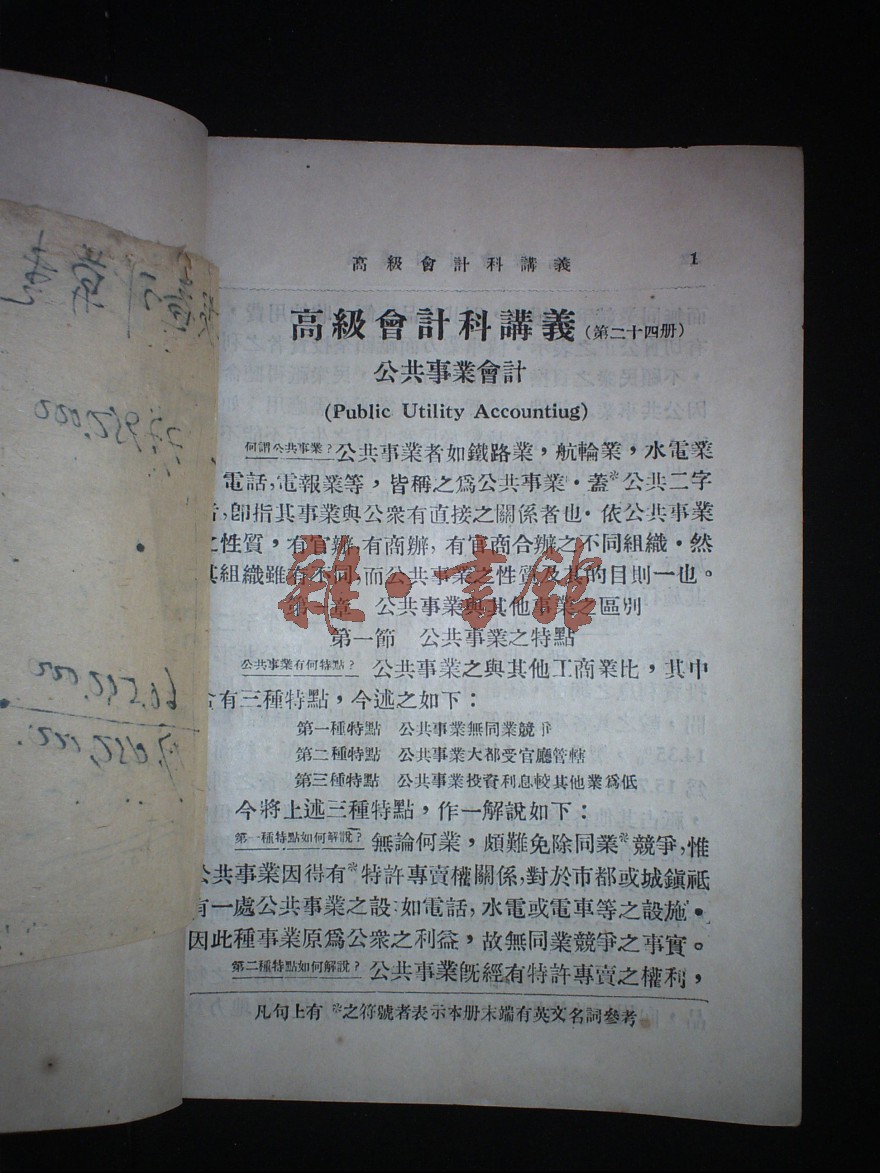 高級會計科講義 1
高級會計科講義(第二十四册)
公共事業會計
(Public Utility Accountiug)
何謂公共事業?公共事業者如鐵路業，航輪業，水電業
電話,電報業等，皆稱之爲公共事業・蓋*公共二字
,卽指其事業與公衆有直接之關係者也・依公共事業
之性質，有官辦,有商辦,有官商合辦之不同組織・然
其組織雖有不同,而公共事業之性質及其的目則一也。
第一章 公共事業與其他事業之區別
第一節 公共事業之特點
公共事業有何特點? 公共事業之與其他工商業比，其中
含有三種特點，今述之如下：
第一種特點 公共事業無同業競
第二種特點 公共事業大都受官廳管轄
第三種特點 公共事業投資利息較其他業爲低
今將上述三種特點，作一解說如下：
第一種特點如何解說? 無論何業，頗難免除同業*競爭,惟
公共事業因得有*特許專賣權關係,對於市都或城鎭祇
有一處公共事業之設:如電話,水電或電車等之設施・
因此種事業原爲公衆之利益，故無同業競爭之事實。
第二種特點如何解說? 公共事業旣經有特許專賣之權利，
凡句上有*之符號者表示本册末端有英文名詞參考
雜・書館